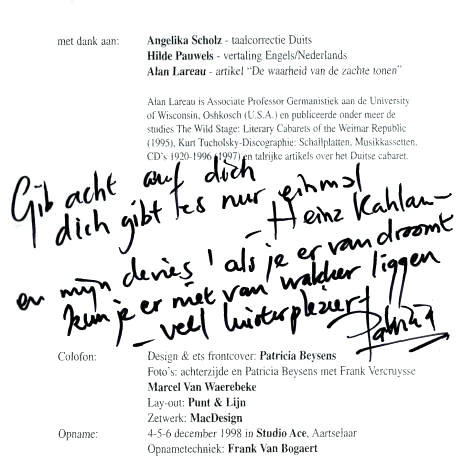 met dank aan: Angelika Scholz - taalcorrectie Duits
Hilde Pauwels - vertaling Engels/Nederlands
Alan Lareau - artikel “De waarheid van de zachte tonen”
Alan Lareau is Associate Professor Germanistiek aan de University
of Wisconsin, Oshkosch (U.S.A.) en publiceerde onder meer de
studies The Wild Stage: Literary Cabarets of the Weimar Republic
(1995), Kurt Tucholsky-Discographie: Schallplatten, Musikkassetten,
CD’s 1920-1996 (1997) en talrijke artikels over het Duitse cabaret.
Gib acht auf dich
dich gibt es nur einmal
- Heinz Kahlau -
en mijn devies ! als je er van droomt
kun je er niet van wakker liggen
- veel luisterplezier!
Patricia
Colofon: Design & ets frontcover: Patricia Beysens
Foto’s: achterzijde en Patricia Beysens met Frank Vercruysse
Marcel Van Waerebeke
Lay-out: Punt & Lijn
Zetwerk: MacDesign
Opname: 4-5-6 december 1998 in Studio Ace, Aartselaar
Opnametechniek: Frank Van Bogaert